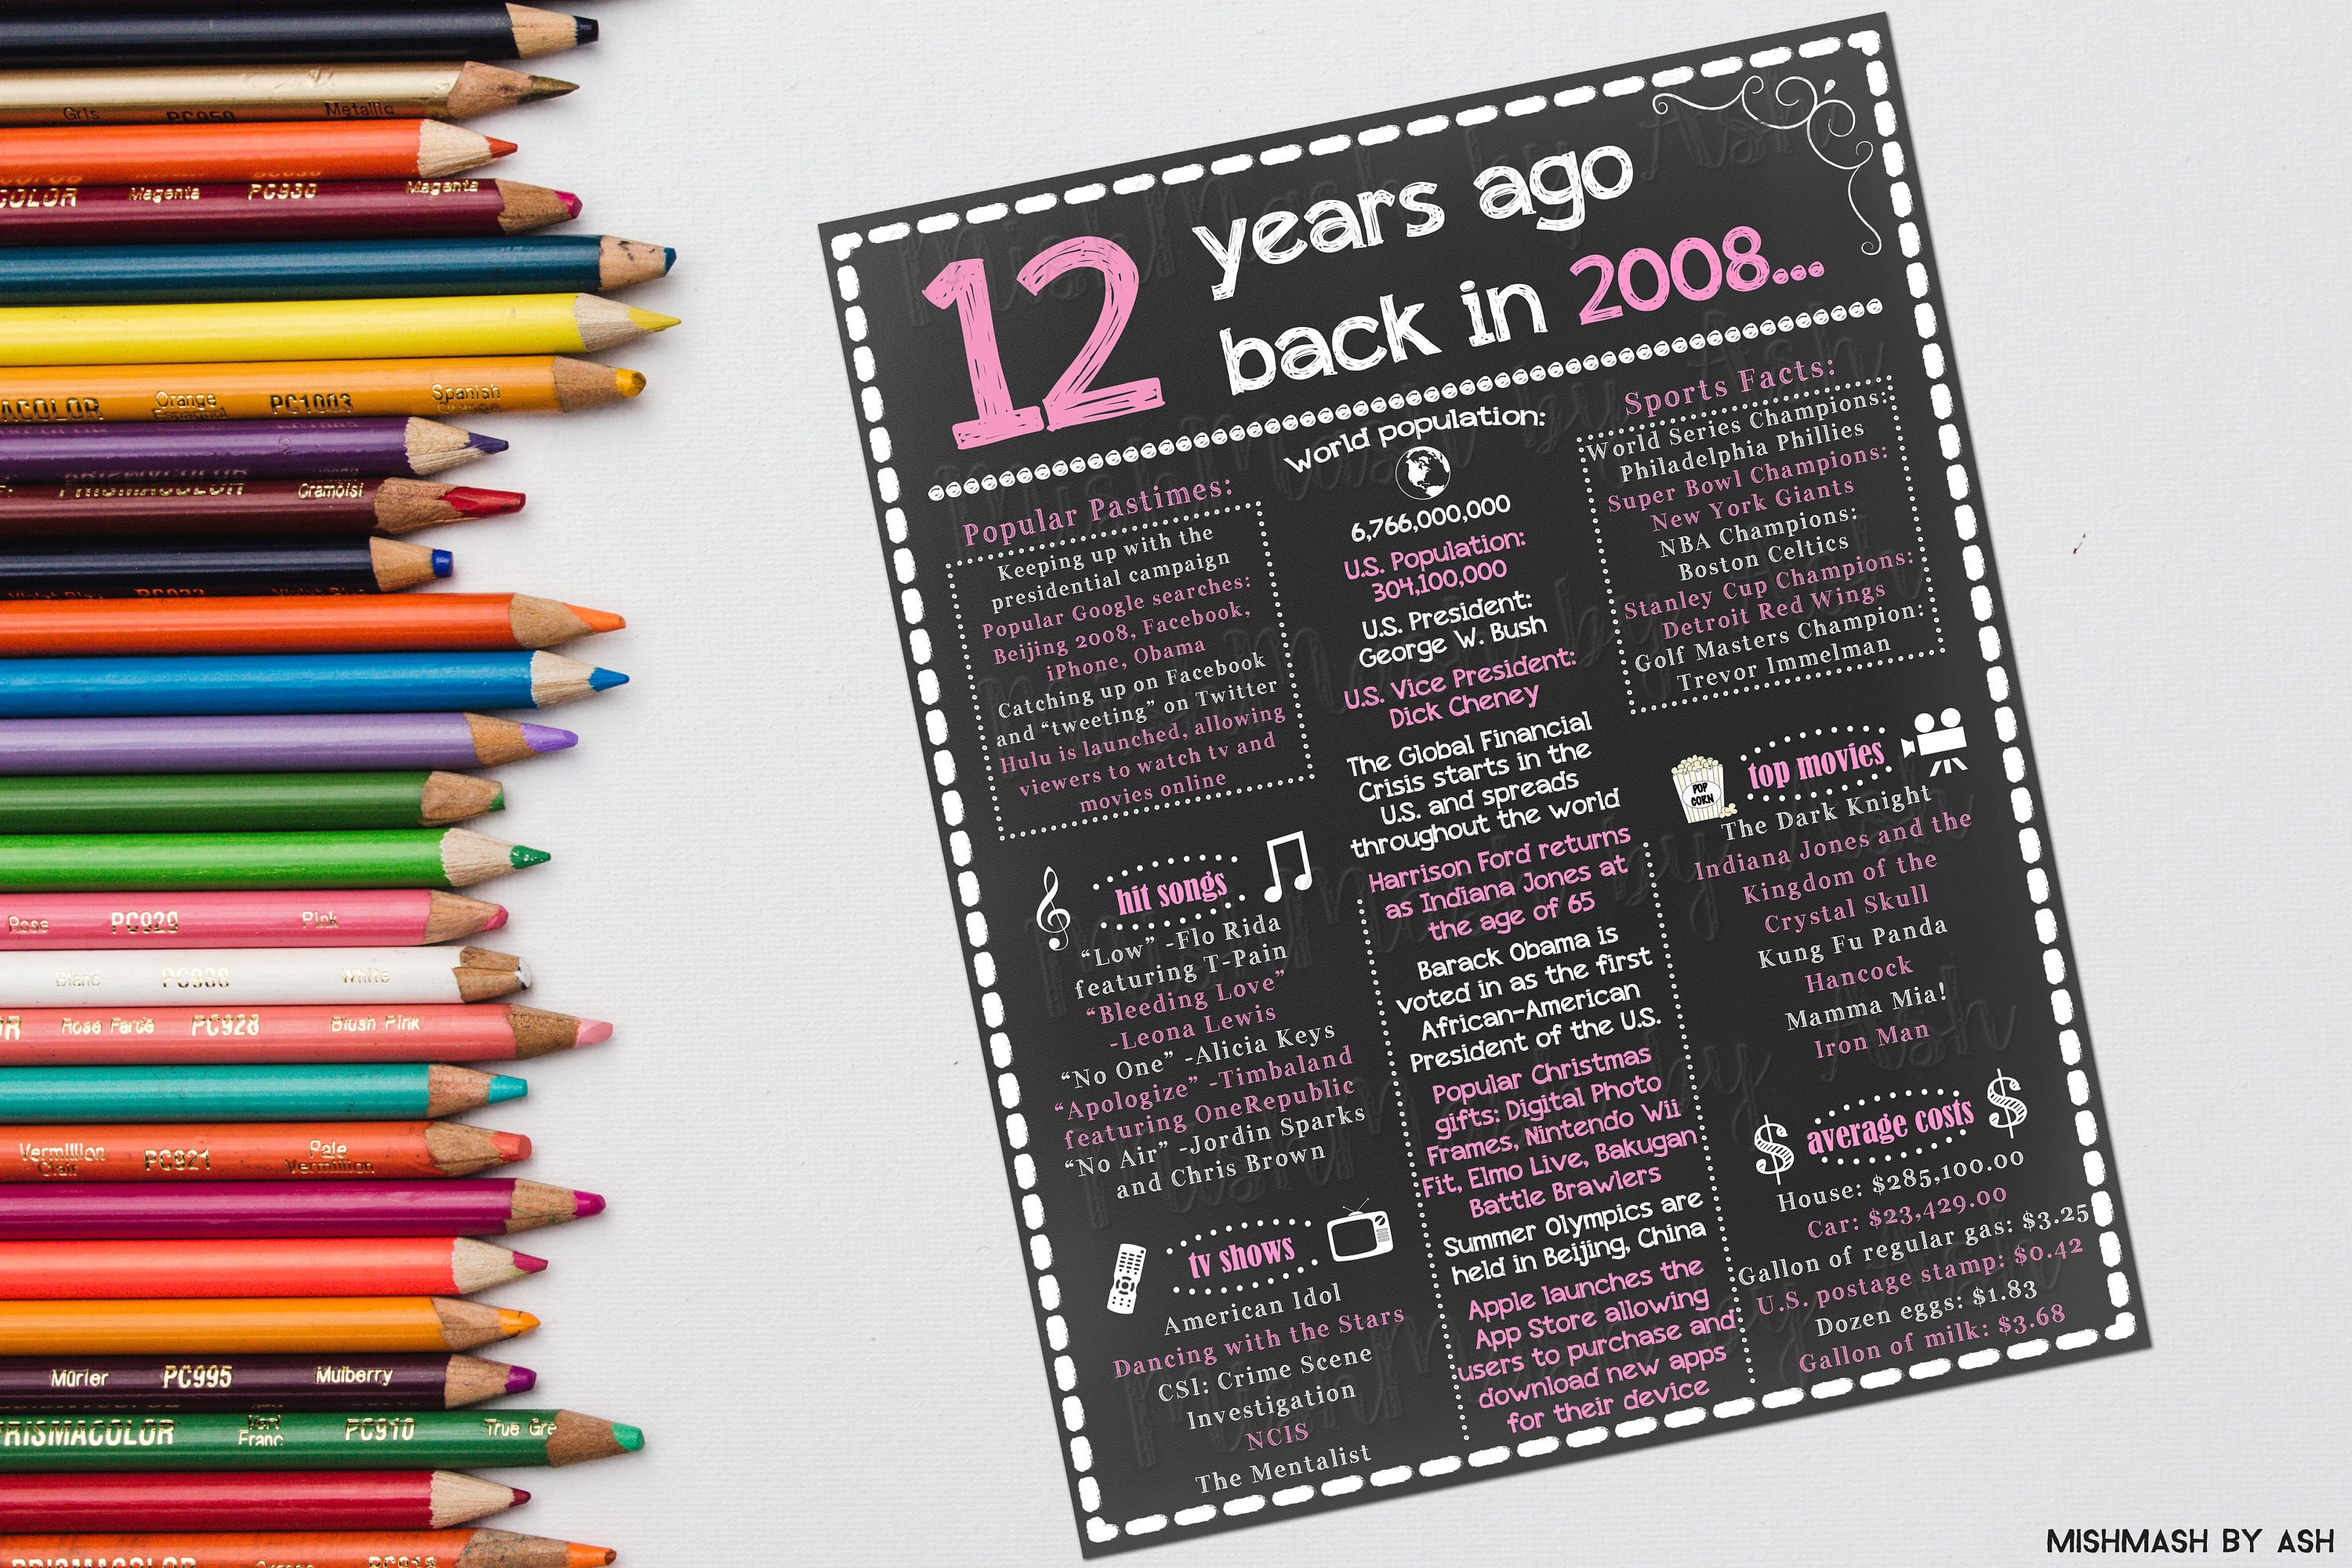 Gris PC950 Metallic
COLOR Magenta PC930 Magenta
ACOLOR Orange PC1003 Spanish
PRISMACOLOR Cramoisi
Rose PC929 Pink
Blanc PC938 White
OR Rose Farde PC928 Blush Pink
Vermillion Clair PC921 Pale Vermillion
Mûrier PC995 Mulberry
PRISMACOLOR Vert Franc PC910 True Gre
PRISMACOLOR
12 years ago
back in 2008...
Popular Pastimes:
Keeping up with the
presidential campaign
Popular Google searches:
Beijing 2008, Facebook,
iPhone, Obama
Catching up on Facebook
and “tweeting” on Twitter
Hulu is launched, allowing
viewers to watch tv and
movies online
hit songs
“Low” -Flo Rida
featuring T-Pain
“Bleeding Love”
-Leona Lewis
“No One” -Alicia Keys
“Apologize” -Timbaland
featuring OneRepublic
“No Air” -Jordin Sparks
and Chris Brown
tv shows
American Idol
Dancing with the Stars
CSI: Crime Scene
Investigation
NCIS
The Mentalist
world population:
6,766,000,000
U.S. Population:
304,100,000
U.S. President:
George W. Bush
U.S. Vice President:
Dick Cheney
The Global Financial
Crisis starts in the
U.S. and spreads
throughout the world
Harrison Ford returns
as Indiana Jones at
the age of 65
Barack Obama is
voted in as the first
African-American
President of the U.S.
Popular Christmas
gifts: Digital Photo
Frames, Nintendo Wii
Fit, Elmo Live, Bakugan
Battle Brawlers
Summer Olympics are
held in Beijing, China
Apple launches the
App Store allowing
users to purchase and
download new apps
for their device
Sports Facts:
World Series Champions:
Philadelphia Phillies
Super Bowl Champions:
New York Giants
NBA Champions:
Boston Celtics
Stanley Cup Champions:
Detroit Red Wings
Golf Masters Champion:
Trevor Immelman
POP
CORN
top movies
The Dark Knight
Indiana Jones and the
Kingdom of the
Crystal Skull
Kung Fu Panda
Hancock
Mamma Mia!
Iron Man
$ average costs $
House: $285,100.00
Car: $23,429.00
Gallon of regular gas: $3.25
U.S. postage stamp: $0.42
Dozen eggs: $1.83
Gallon of milk: $3.68
MISHMASH BY ASH